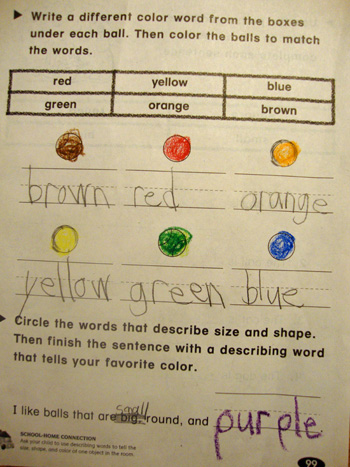 Write a different color word from the boxes
under each ball. Then color the balls to match
the words.
red yellow blue
green orange brown
brown red orange
yellow green blue
Circle the words that describe size and shape.
Then finish the sentence with a describing word
that tells your favorite color.
small
I like balls that are big, round, and purple
SCHOOL-HOME CONNECTION
Ask your child to use describing words to tell the
size, shape, and color of one object in the room.
99